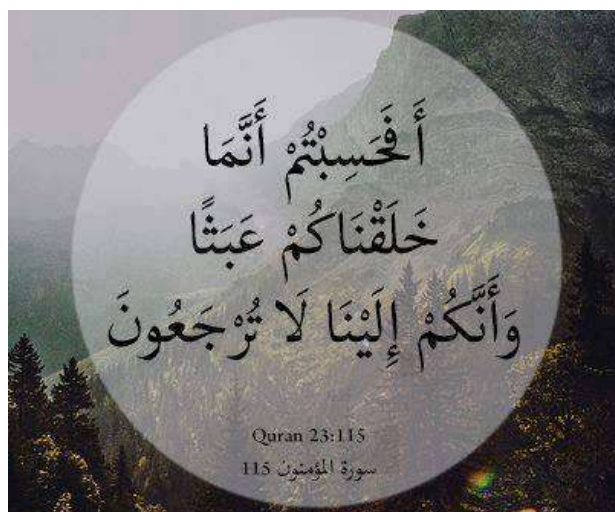 أَفَحَسِبْتُمْ أَنَّمَا
خَلَقْنَاكُمْ عَبَثًا
وَأَنَّكُمْ إِلَيْنَا لَا تُرْجَعُونَ
Quran 23:115
سورة المؤمنون 115